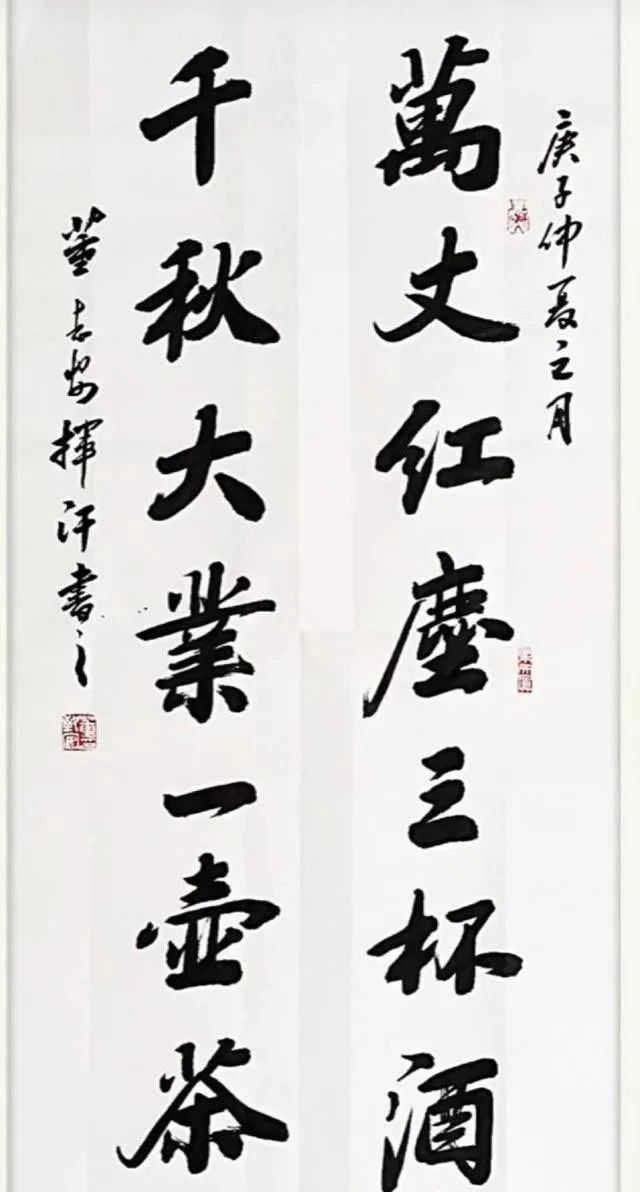 庚子仲夏之月
萬丈红塵三杯酒
千秋大業一壺茶
董志 揮汗書之